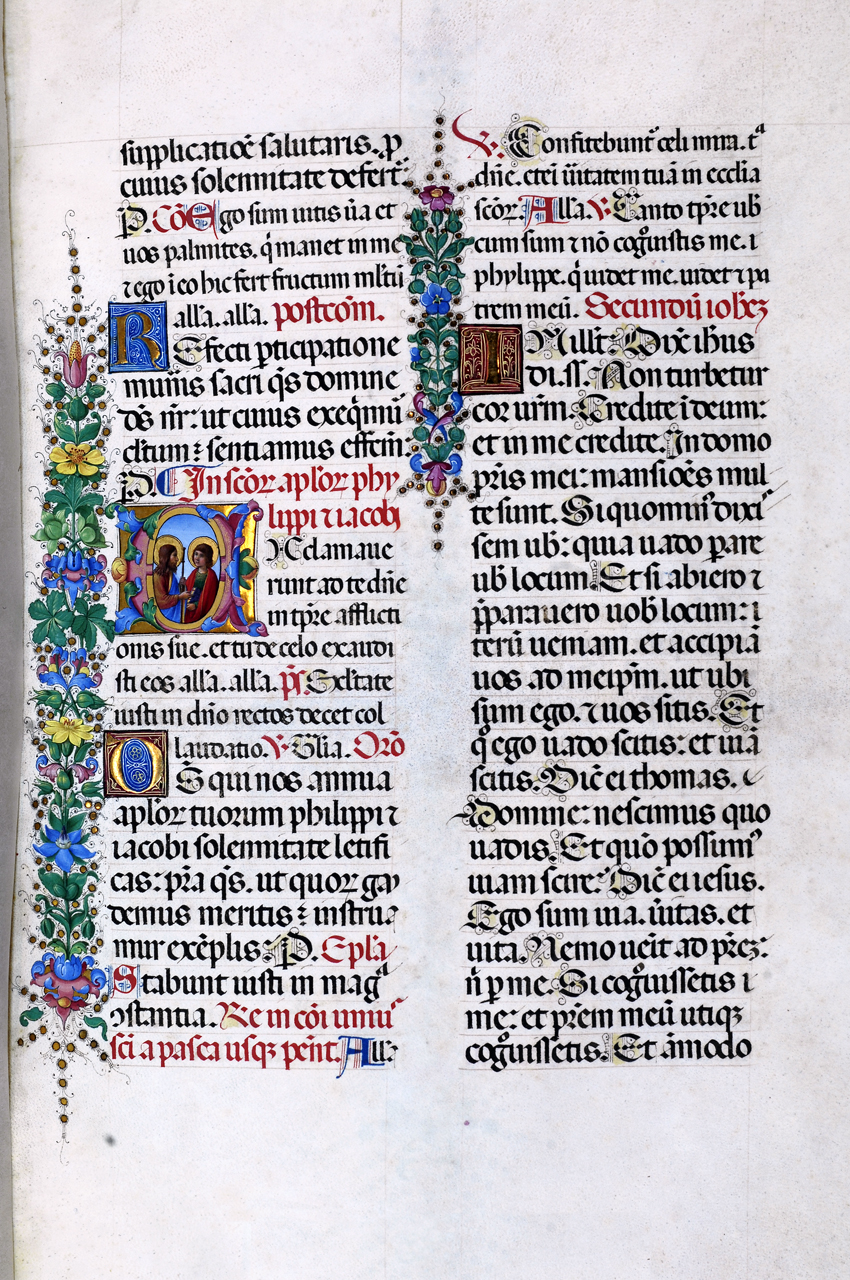 supplicatioē salutaris. p
cuius solemnitate defert᷑.
P. Cōo Ego sum uitis ūa et
uos palmites. q̇ manet in me
⁊ ego ī eo hic fert fructum ml̄tū
alľa. alľa. postcoīn.
REfecti ꝑticipatione
muniis sacri q̄s domine
dс̄ nr̄: ut cuius exeq̄mur
cl̄tum: sentiamus effcm̄.
P. D. In sc̄oꝝ apl̄oꝝ phy
lippi ⁊ iacobi
EXclamaue
runt ad te dn̄e
in tp̄re afflicti
onis sue. et tu de celo exaudi
sti eos alľa. alľa. ps̄ Exl̄tate
iusti in dn̄o rectos decet col
laudatio. V. Gl̄ia. Orō
DS̄ qui nos annua
apl̄oꝝ tuorum philippi ⁊
iacobi solemnitate letifi
cas: pr̄a q̄s. ut quoꝝ gau
demus meritis: instrua
mur exēplis. P. D. Epl̄a
Stabunt iusti in magᵃ
ꝯstantia. Re in cōi unius
sc̄i a pasca usqꝫ pent̄. Alľa
V. Confitebunt᷑ celi mira. tᵃ
dn̄e. etei ūitatem tuā in ecclia
sc̄oꝝ. Alľa. V. Tanto tp̄re ub̄
cum sum ⁊ nō cog̊uistis me. i
phylippe. q̇ uidet me. uidet ⁊ pa
trem meū. Secundū iohēꝫ
IN illľt Dix̄ ihūs
di. ss. Non turbetur
cor ur̄m. Credite ī deum:
et in me credite. In domo
pr̄is mei: mansioēs mul
te sunt. Si quominꝰ dixis
sem ub̄: quia uado ꝑare
ub̄ locum. Et si abiero ⁊
p̄parauero uob̄ locum: i
terū ueniam. et accipiā
uos ad meipm̄. ut ubi
sum ego. ⁊ uos sitis. Et
q̊ ego uado scitis: et uiā
scitis. Dic̄ ei thomas.
Domine: nescimus quo
uadis. Et quō possumꝰ
uiam scire? Dic̄ ei iesus.
Ego sum uia. ūitas. et
uita. Nemo ueīt ad pr̄eꝫ:
n̄ ꝑ me. Si cog̊uissetis i
me: et pr̄em meū utiqꝫ
cog̊uissetis. Et āmodo